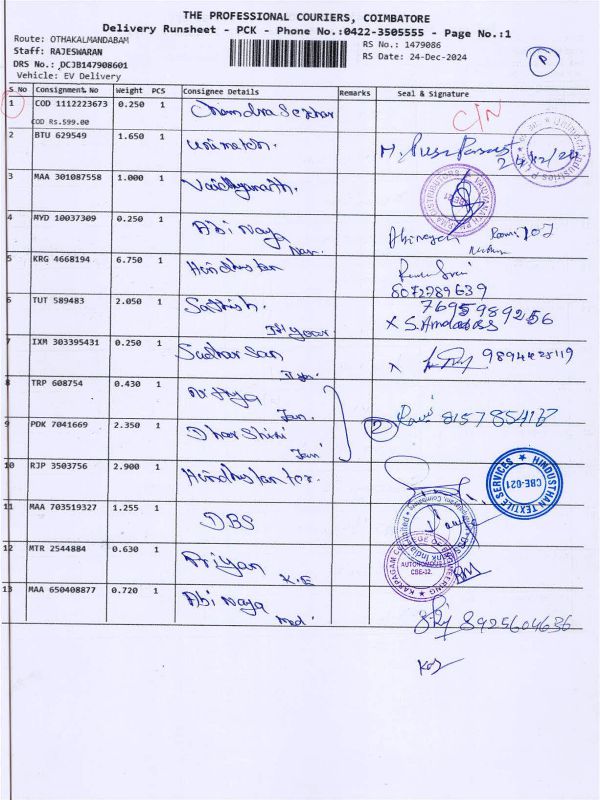 THE PROFESSIONAL COURIERS, COIMBATORE
Delivery Runsheet - PCK - Phone No.:0422-3505555 - Page No.:1
Route: OTHAKALMANDABAM
RS No.: 1479086
Staff: RAJESWARAN
RS Date: 24-Dec-2024
DRS No.: DCJB147908601
Vehicle: EV Delivery
P
S No Consignment No Weight PCS Consignee Details Remarks Seal & Signature
1 COD 1112223673 0.250 1 Chandra Sekhar C/N
COD Rs.599.00
2 BTU 629549 1.650 1 Unimatch.
24/12/24
3 MAA 301087558 1.000 1 Vaidhyanath.
4 MYD 10037309 0.250 1 Abi Naya
Abinaya Room: 107
5 KRG 4668194 6.750 1 Hindhustan
8072789639
6 TUT 589483 2.050 1 Sathish.
7695989256
1st year
7 IXM 303395431 0.250 1 Sudharsan
8 TRP 608754 0.430 1
9 PDK 7041669 2.350 1 Dharshini
2 Ravi
10 RJP 3503756 2.900 1 Hindhustan
HINDUSTHAN TEXTILE SERVICES
CBE-021
11 MAA 703519327 1.255 1 DBS
12 MTR 2544884 0.630 1 Priyan
K.E
AUTONOMOUS
CBE-32.
13 MAA 650408877 0.720 1 Abi Naya
8925604636